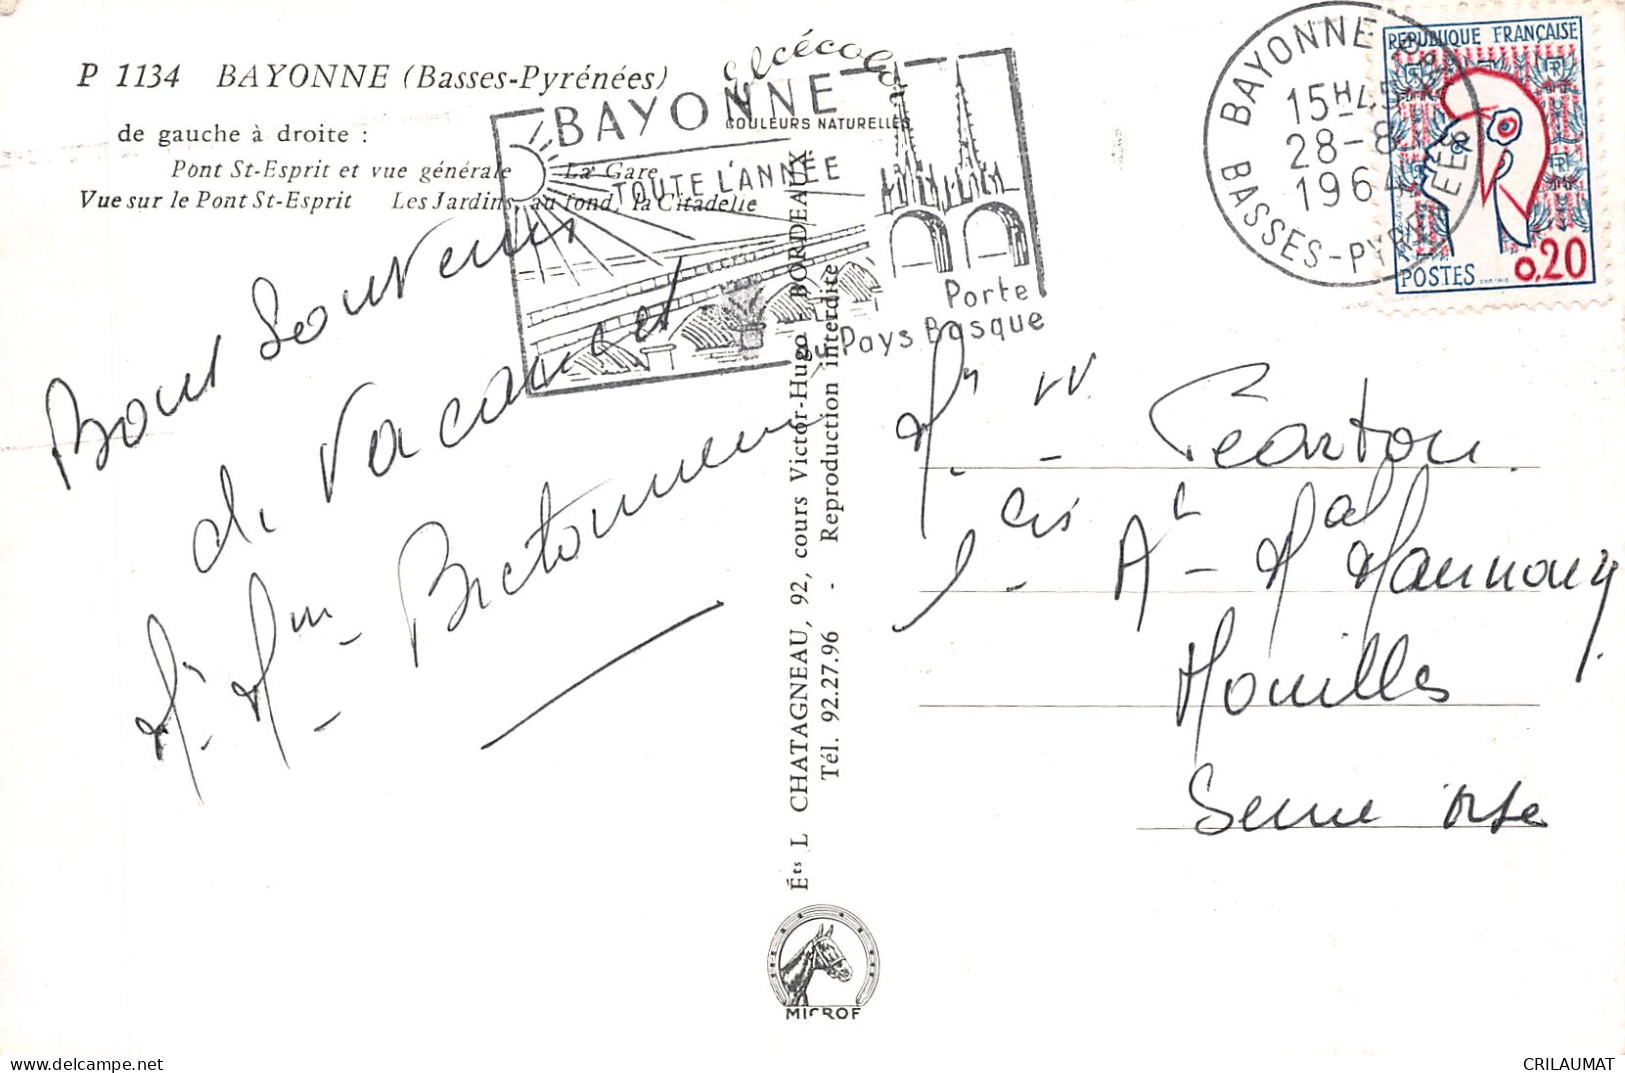 P 1134 BAYONNE (Basses-Pyrénées)
de gauche à droite :
Pont St-Esprit et vue générale La Gare
Vue sur le Pont St-Esprit Les Jardins, au fond, la Citadelle
COULEURS NATURELLES
BAYONNE
TOUTE L'ANNÉE
Porte
du Pays Basque
BAYONNE R.P.
15H45
28-8
1964
BASSES-PYRÉNÉES
REPUBLIQUE FRANÇAISE
POSTES 0,20
Bons Souvenirs
de Vacances et
Mr Mme Bretonneau
Éts L CHATAGNEAU, 92, cours Victor-Hugo - BORDEAUX
Tél. 92.27.96 - Reproduction interdite
MICROF
Mr
bis Ar Mal Maunoury
Houilles
Seine Oise
delcampe.net
CRILAUMAT